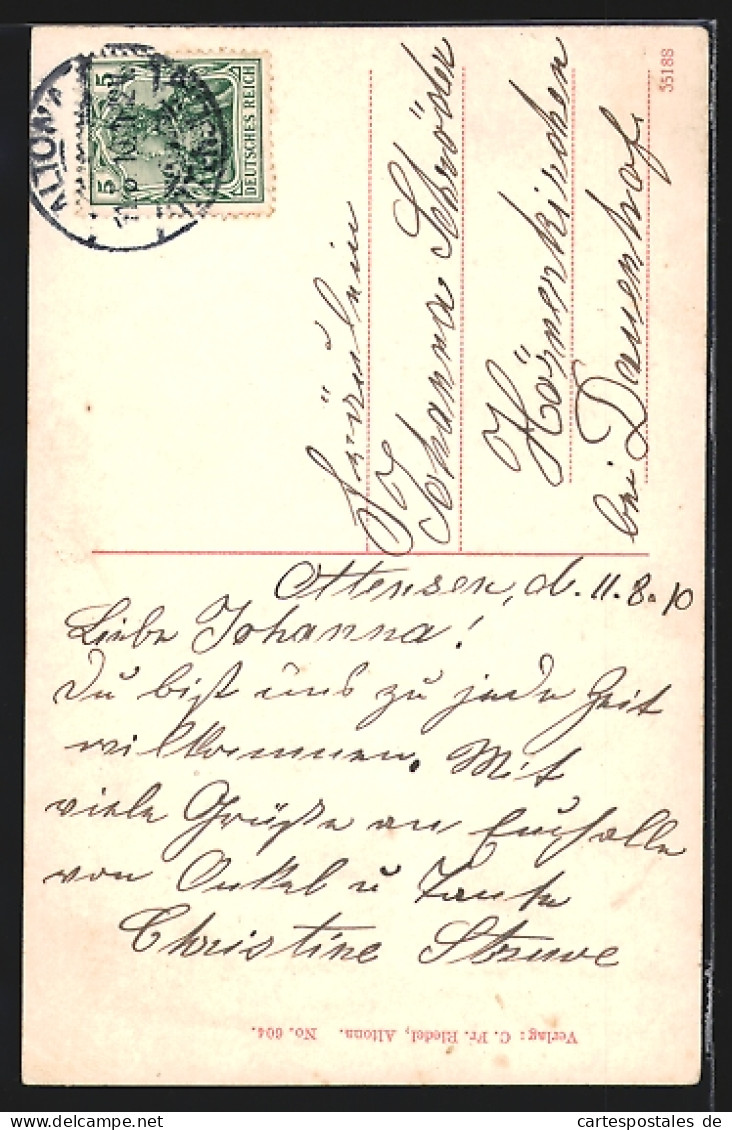 55188
ALTONA
5 5
DEUTSCHES REICH
Fräulein
Johanna Schröder
Hörnerkirchen
bei Dauenhof.
Ottensen, d. 11.8.10
Liebe Johanna!
Du bist uns zu jede Zeit
willkommen. Mit
viele Grüße an Euch alle
von Onkel u Tante
Christine Struve
Verlag: C. Fr. Riedel, Altona. No. 604.
www.ansichtskartenversand.com
cartespostales de